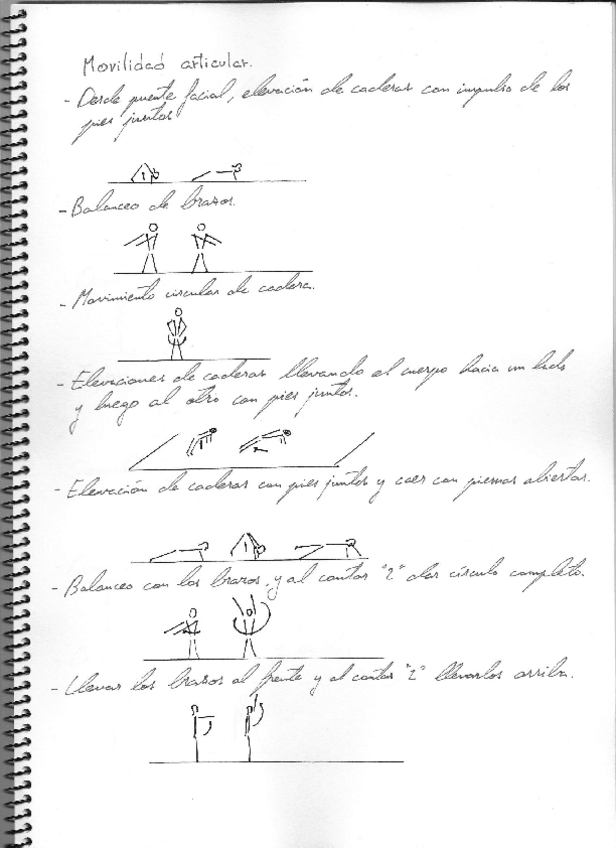 Movilidad articular.
- Desde puente facial, elevación de caderas con impulso de los
pies juntos
- Balanceo de brazos.
- Movimiento circular de cadera.
- Elevaciones de caderas llevando el cuerpo hacia un lado
y luego al otro con pies juntos.
- Elevación de caderas con pies juntos y caer con piernas abiertas.
- Balanceo con los brazos, y al contar "2" dar círculo completo.
- Llevar los brazos al frente y al contar "2" llevarlos arriba.